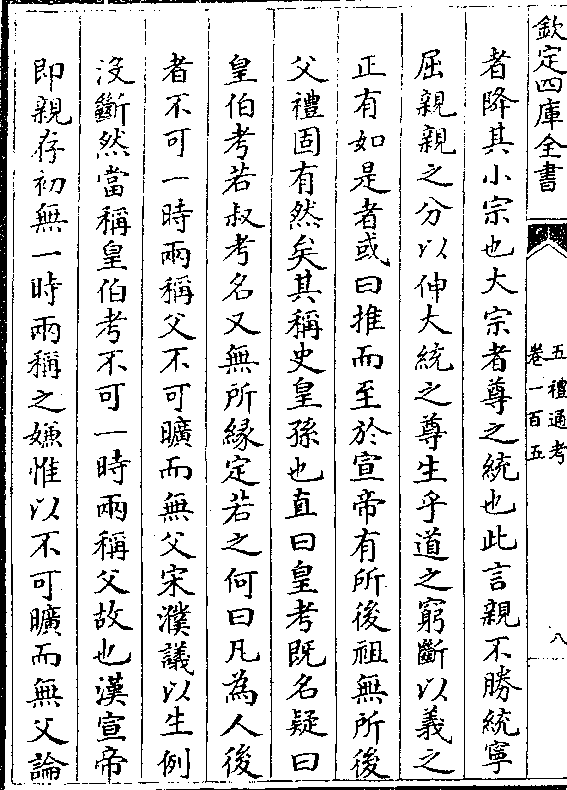 欽定四庫全書
五禮通考
卷一百五
八
者降其小宗也大宗者尊之統也此言親不勝統寧
屈親親之分以伸大統之尊生乎道之窮斷以義之
正有如是者或曰推而至於宣帝有所後祖無所後
父禮固有然矣其稱史皇孫也直曰皇考既名疑曰
皇伯考若叔考名又無所緣定若之何曰凡為人後
者不可一時兩稱父不可曠而無父宋濮議以生例
沒斷然當稱皇伯考不可一時兩稱父故也漢宣帝
即親存初無一時兩稱之嫌惟以不可曠而無父論